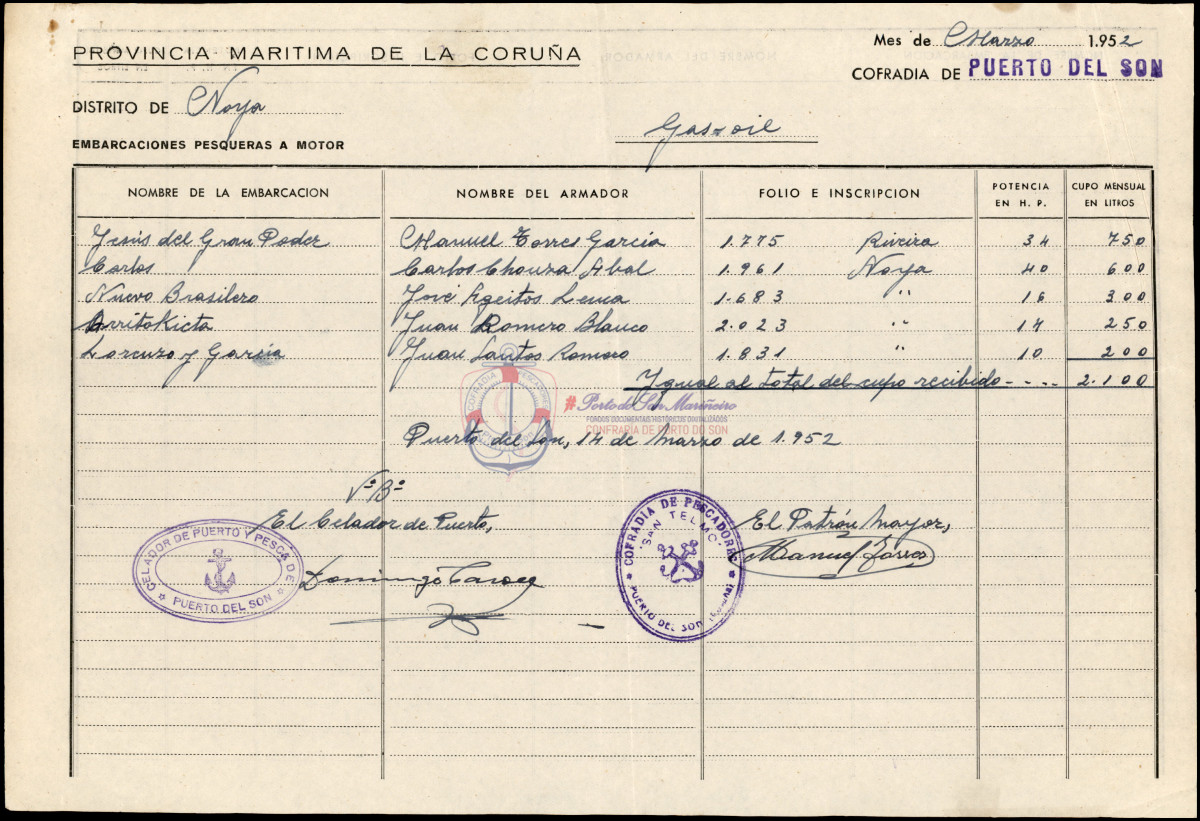 PROVINCIA MARITIMA DE LA CORUÑA
Mes de Marzo 1.952
COFRADIA DE PUERTO DEL SON
DISTRITO DE Noya
Gas-oil
EMBARCACIONES PESQUERAS A MOTOR
NOMBRE DE LA EMBARCACION NOMBRE DEL ARMADOR FOLIO E INSCRIPCION POTENCIA EN H. P. CUPO MENSUAL EN LITROS
Jesús del Gran Poder Manuel Torres García 1.775 Riveira 34 750
Carlos Carlos Chouza Abal 1.961 Noya 40 600
Nuevo Brasilero José Ageitos Lema 1.683 " 16 300
Arritokieta Juan Romero Blanco 2.023 " 14 250
Lorenzo y García Juan Santos Romero 1.831 " 10 200
Ygual al total del cupo recibido ---- 2.100
#Porto do Son Mariñeiro
FONDOS DOCUMENTAIS HISTÓRICOS DIXITALIZADOS
CONFRARÍA DE PORTO DO SON
Puerto del Son, 14 de Marzo de 1.952
Vº Bº
El Celador de Puerto,
El Patrón Mayor,
CELADOR DE PUERTO Y PESCA DE
PUERTO DEL SON
COFRADIA DE PESCADORES
"SAN TELMO"
PUERTO DEL SON
Domingo
Manuel Torres